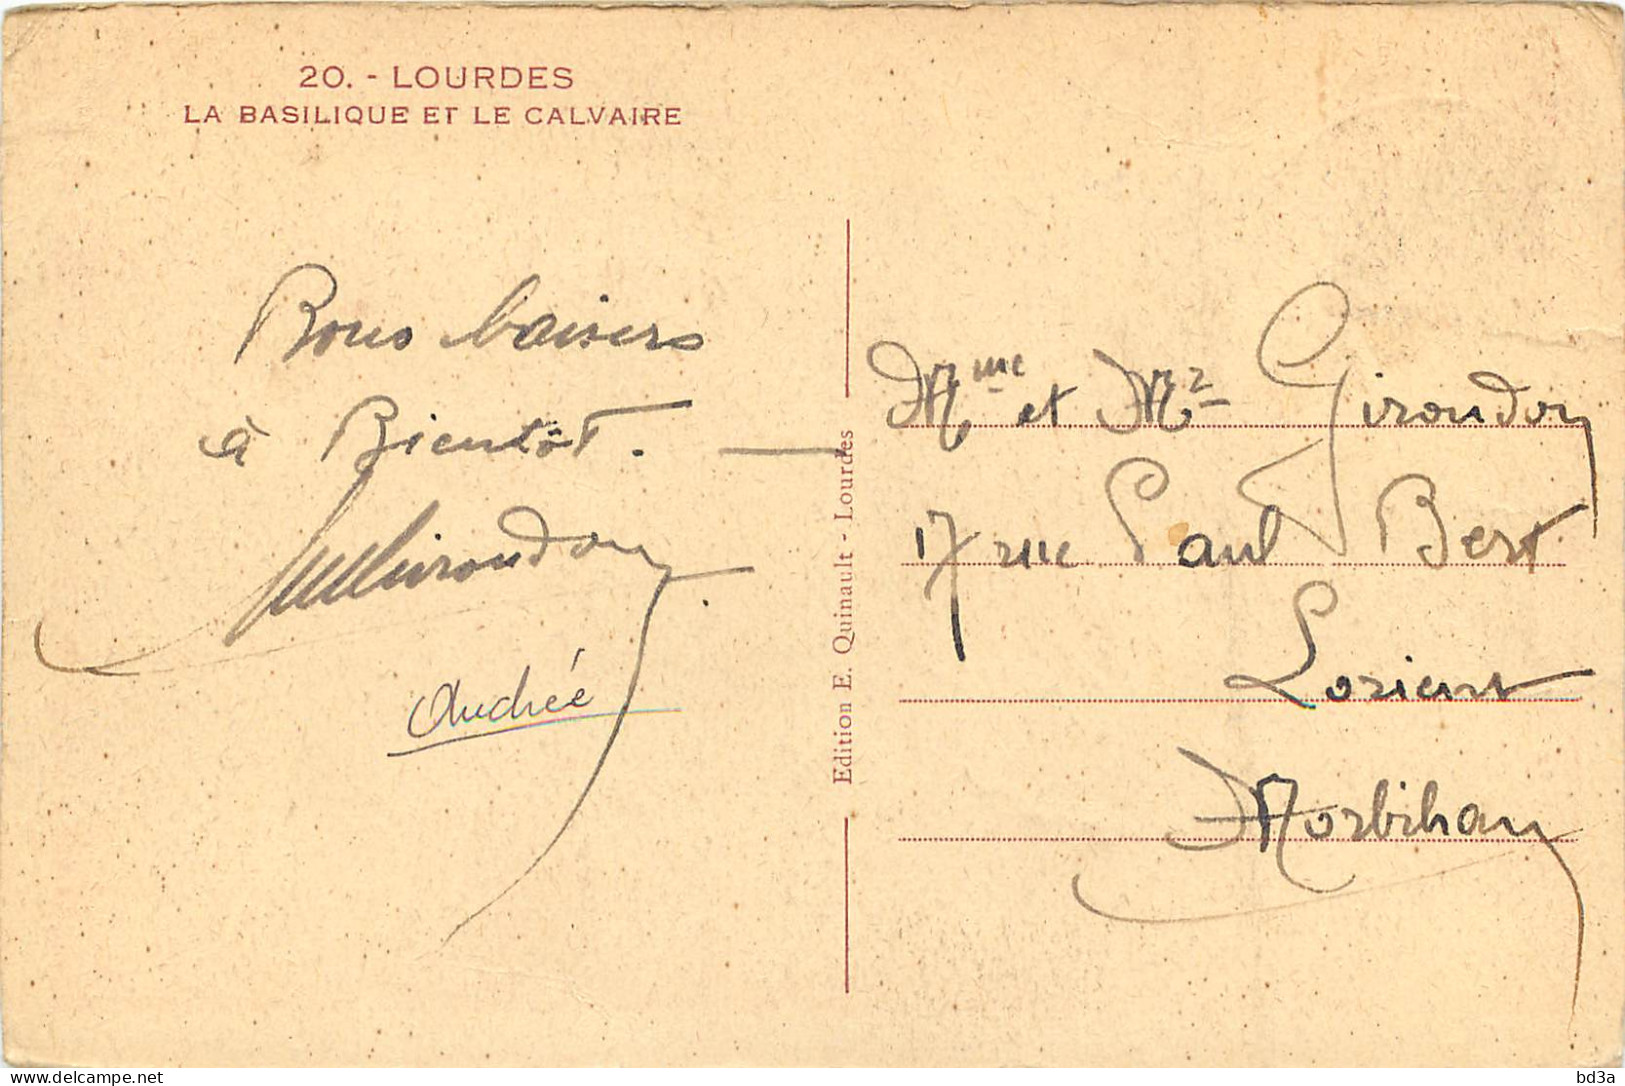 20. - LOURDES
LA BASILIQUE ET LE CALVAIRE
Bons baisers
à Bientôt.
Girondon
Andrée
Edition E. Quinault - Lourdes
Mme et Mr Girondon
17 rue Paul Bert
Lorient
Morbihan
www.delcampe.net
bd3a